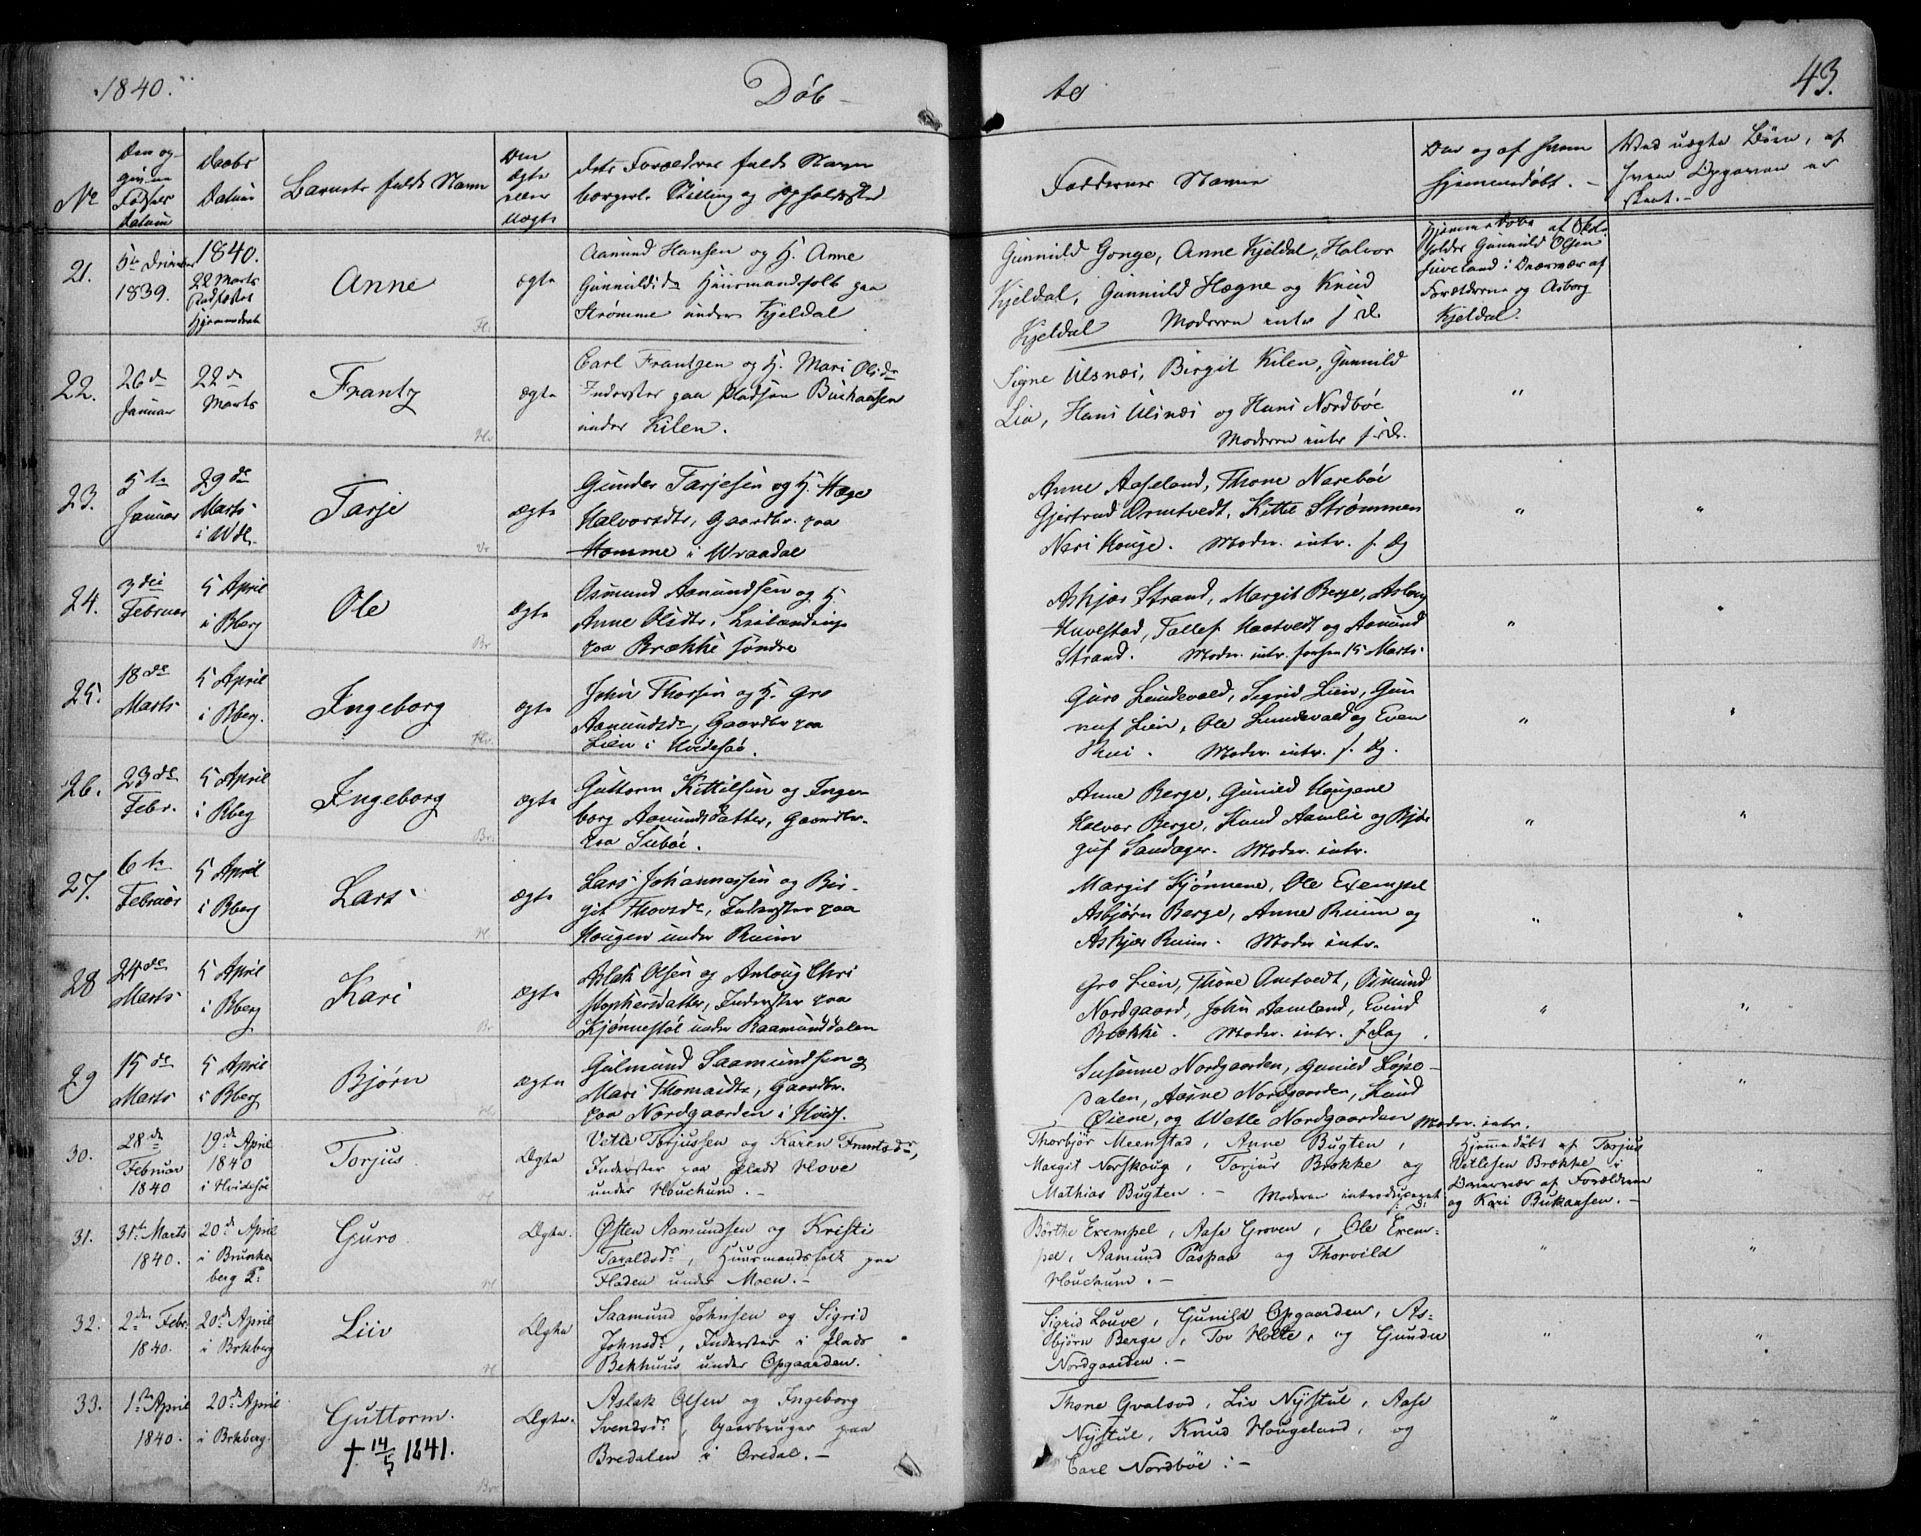 1840. Døb- te 43.
No Den og- givne Fødsels Datum
Daabs Datum
Barnets fulde Navn
Om ægte eller uægte
dets Forældres fulde Navn
borgerl. Stilling og Opholdssted
Faddernes Navne
Om og af hvem hjemmedøbt. -
Ved uægte Børn, af hvem Opgaven er skeet. -
21.
1839.
1840.
22 Marts
Anne
ægte
Aamund Hansen og H. Anne
Gunnuldsdr Huusmandsfolk paa
Strømme under Kjeldal
Gunnuld Gonge, Anne Kjeldal, Halvor
Kjeldal, Gunnuld Hægne og Knud
Kjeldal Moderen intr. s. D.
Hjemmedøbt af
Gunnuld Olsen
af
Forældrene og Asborg
Kjeldal.
22.
26de
Januar
22de
Marts
Frantz
ægte
Carl Frantzen og H. Mari Olsdr
Inderster paa Pladsen Bukaasen
under Kilen.
Signe Ulsnæs, Birgit Kilen, Gunnild
Lia, Hans Ulsnæs og Hans Nordbøe
Moderen intr. s. D.
"
23.
5te
Januar
29de
Marts
i Wdl.
Tarje
ægte
Gunder Tarjesen og H. Hæge
Halvorsdtr, Gaardbr. paa
Homme i Wraadal
Anne Aaseland, Thone Narebøe
Gjertrud Ormtvedt, Kitte Strømmen
Neri Houge. Moder. intr. s. Dg
" "
24.
3die
Februar
5 April
i Bberg
Ole
ægte
Osmund Aamundsen og H.
Anne Olsdtr,
paa Brække søndre
Askjær Strand, Margit Berge, Aslaug
Huvestad, Tallef Haatvedt og Aamund
Strand. Moder. intr. 15 Marts.
" "
25.
18de
Marts
5 April
i Bberg.
Ingeborg
ægte
John Thorsen og H. Gro
Aamundsdr, Gaardbr paa
Lien i Hvidesøe.
Guro Lundevald, Sigrid Lien, Gun
nuf Lien, Ole Lundevald og Even
Moder. intr. s. Dg.
" "
26.
23de
Febr.
5 April
i Bberg
Ingeborg
ægte
Guttorm Kittilsen og Inge-
borg Aamundsdatter, Gaardbr.
paa Subøe.
Anne Berge, Gunild Haugane
Halvor Berge, Knud Aamlie og Bjør
guf Sandager. Moder. intr.
" "
27.
6te
Februar
5 April
i Bberg
Lars
ægte
Lars Johannessen og Bir-
git Thovsdr, Inderster paa
Haugen under Ruim
Margit Kjønnene, Ole Exempel
Asbjørn Berge, Anne Ruim og
Askjær Ruim. Moder intr.
" "
28
24de
Marts
5 April
i Bberg
Kari
ægte
Aslak Olsen og Anlaug Chri
stophersdatter, Inderster paa
Kjønnestøl under Raamunddalen
Gro Lien, Thone Omtvedt, Osmund
Nordgaard, John Aamland, Evind
Brække. Moder. intr. s. Dag.
" "
29
15de
Marts
5 April
i Bberg
Bjørn
ægte
Gulmund Saamundsen og
Mari Thomasdtr, Gaardbr.
paa Nordgaarden i Hvids.
Susanne Nordgaarden, Gunild Løpe-
dalen, Aasne Nordgaarden, Knud
Øiene, og Wetle Nordgaarden Moder. intr.
"
30.
28de
Februar
1840
19de April
1840
i Hvidesøe
Torjus
Ægte
Vetle Torjussen og Karen Frantsdr,
Inderster paa Plads Hove
under Houckum. -
Thorbjør Meenstad, Anne Bugten,
Margit Norskoug, Torjus Brække og
Mathias Bugten. - Moderen introduceret s. D.
Hjemmedøbt af Torjus
Vetlesen Brække i
Overvær af Forældrene
og Kari Bukaasen. -
"
31.
31te Marts
1840.
20de April
i Brunke
berg K.
Guro
Ægte.
Østen Aamundsen og Kristi
Taraldsdr, Huusmandsfolk paa
Fladen under Moen. -
Børthe Exempel, Aase Groven, Ole Exem-
pel, Aamund Paspaa og Thorvild
Houckum. -
" "
32.
2den Febr.
1840.
20de April
i Brkberg
Liv
Ægte
Saamund Johnsen og Sigrid
Johnsdr, Inderster i Plads
Bekhuus under Opgaarden.
Sigrid Louve, Gunild Opgaarden, As-
bjørn Berge, Tov Holte, og Gunder
Nordgaarden. -
" "
33.
1ste April
1840.
20de April
i Brkberg.
Guttorm.
† 14/5 1841.
Ægte.
Aslak Olsen og Ingeborg
Svendsdr, Gaarbruger paa
Bredalen i Ordal. -
Thone Qvalsod, Liv Nystul, Aase
Nystul, Knud Hougeland, og
Carl Nordbøe. -
" "